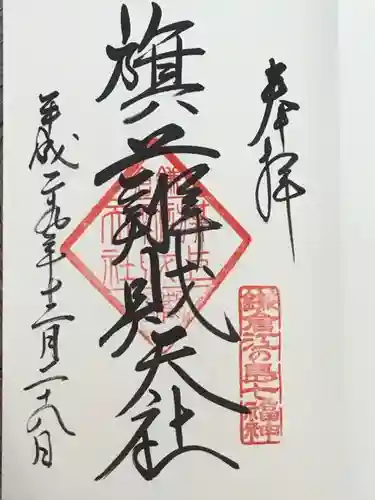 奉拝
鎌倉江の島七福神
旗上辨財天社
平成二十九年十二月二十八日